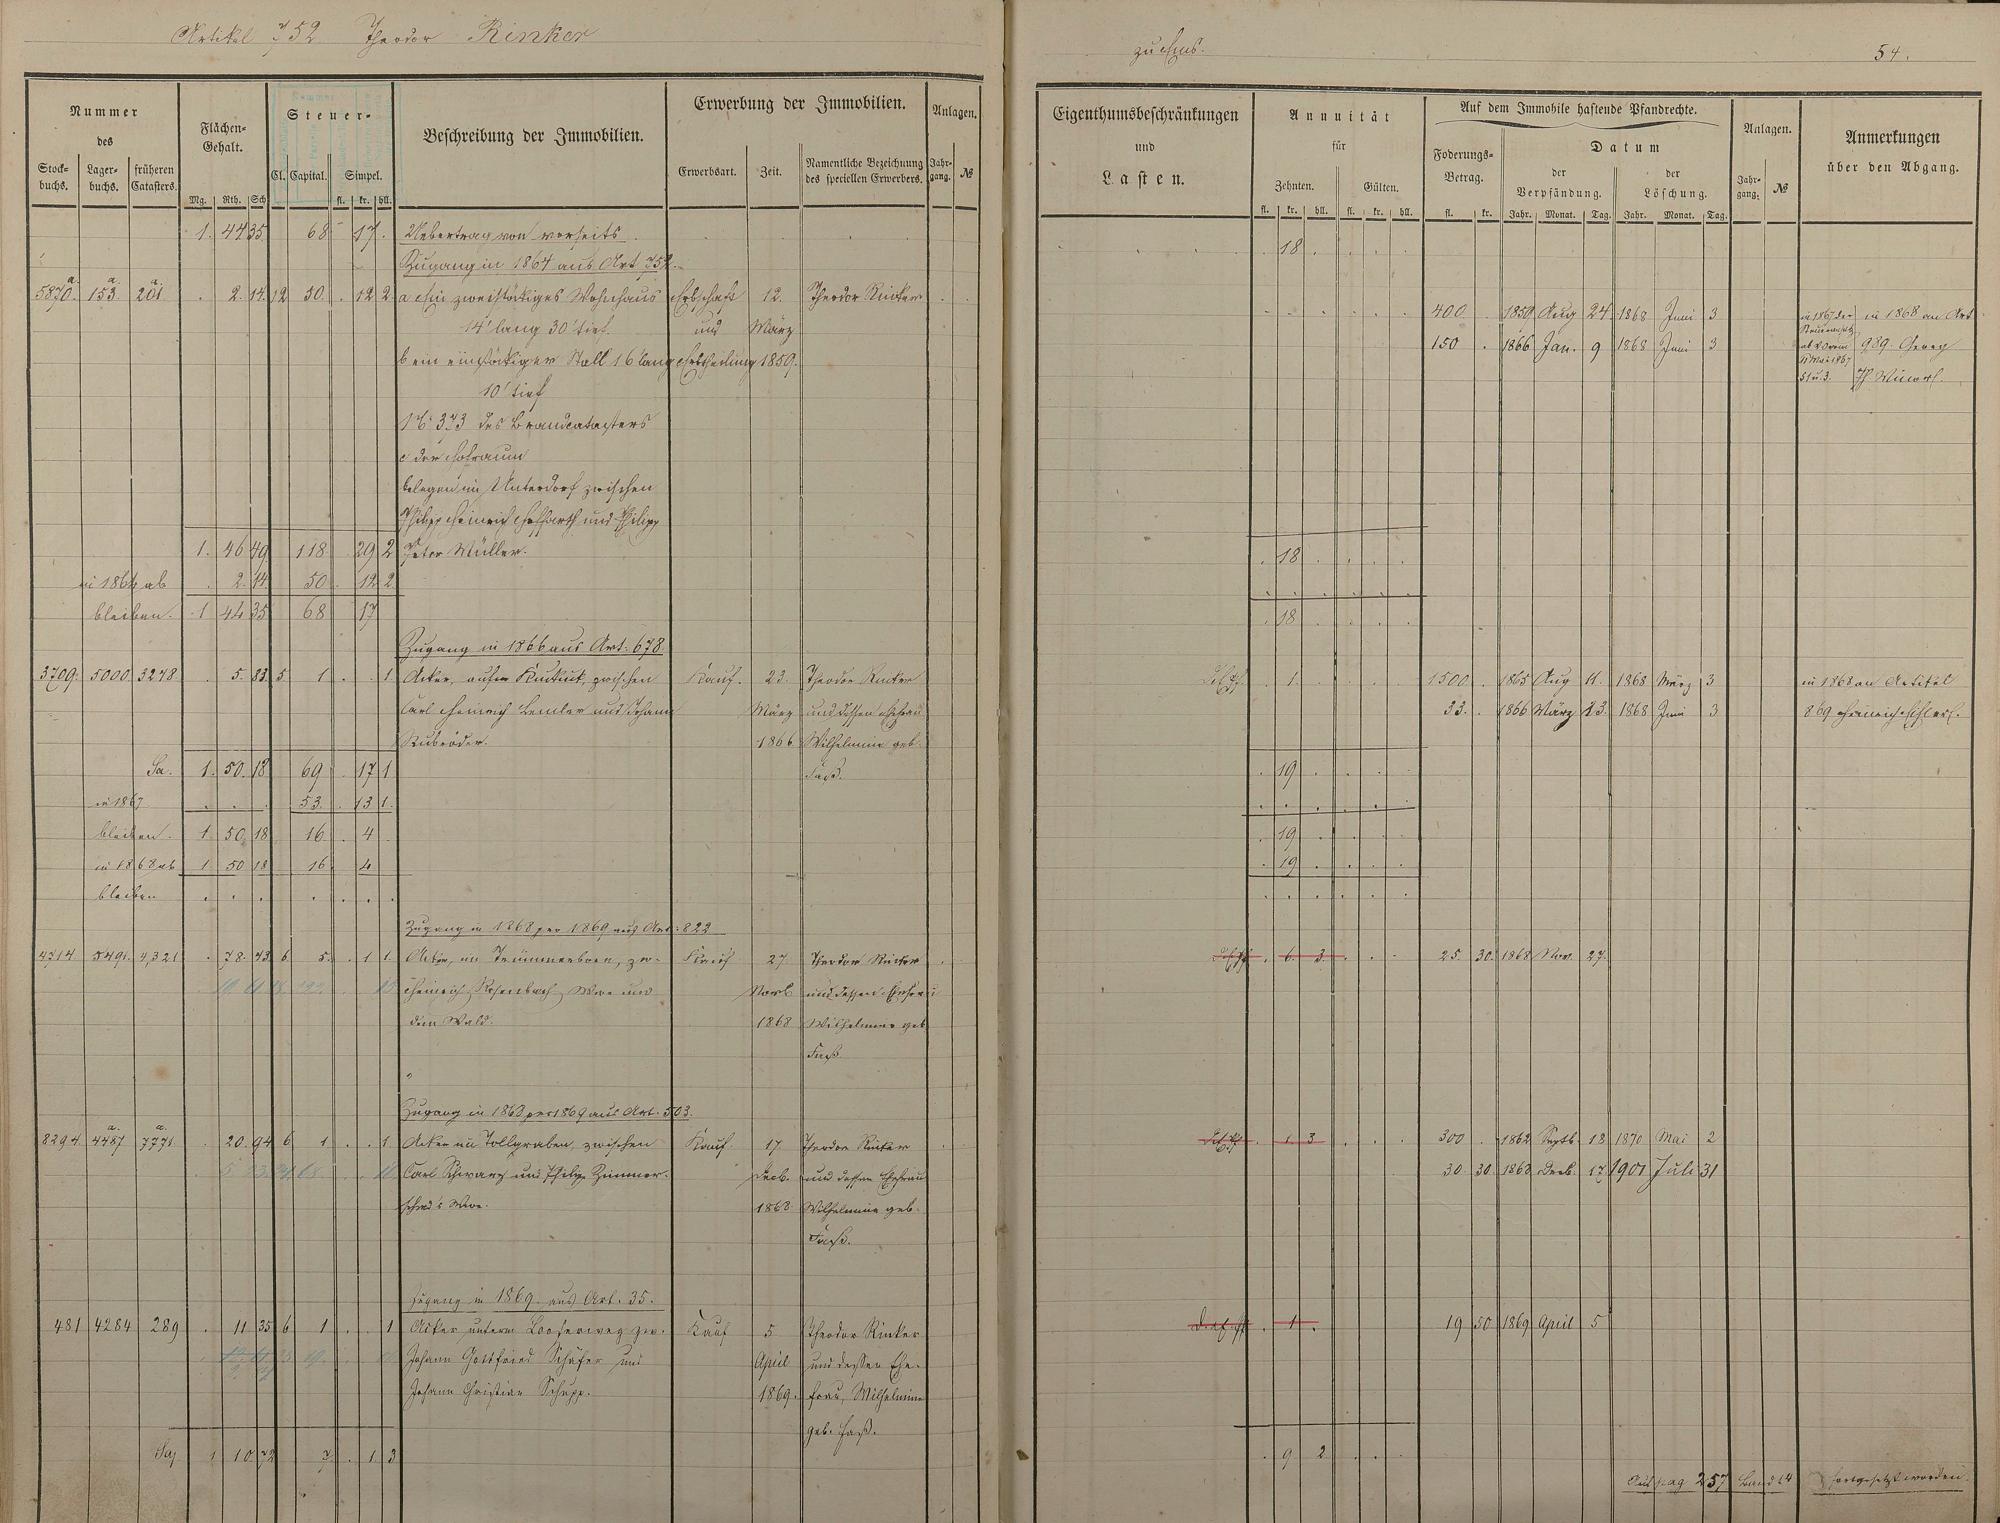 Artikel 752 Theodor Rinker
zu Ems.
54.
Nummer
des
Stock-
buchs.
Lager-
buchs.
früheren
Catasters.
Flächen-
Gehalt.
Mg. Rth. Sch
Steuer-
Cl. Capital. Simpel.
fl. kr. hll.
Beschreibung der Immobilien.
Erwerbung der Immobilien.
Erwerbsart. Zeit.
Namentliche Bezeichnung
des speciellen Erwerbers.
Anlagen.
Jahr-
gang. №
Eigenthumsbeschränkungen
und
Lasten.
Annuität
für
Zehnten. Gülten.
fl. kr. hll. fl. kr. hll.
Auf dem Immobile haftende Pfandrechte.
Foderungs-
Betrag.
fl. kr.
Datum
der
Verpfändung.
der
Löschung.
Jahr. Monat. Tag. Jahr. Monat. Tag.
Anlagen.
Jahr-
gang. №
Anmerkungen
über den Abgang.
1. 44 35. 68 17. Uebertrag von vorseits 18
Zugang in 1864 aus Art. 752.
5870 a. 153 a. 201 a. 2. 14. 12 50. 12 2 a Ein zweistöckiges Wohnhaus Erbschaft 12. Theodor Rinker
400 1859 Aug 24 1868 Juni 3 in 1868 an Art
14' lang 30' tief. und März
b ein einstöckiger Stall 16' lang Erbtheilung 1859.
150 1866 Jan. 9 1868 Juni 3 989. Georg
10' tief
№ 373 des Brandcatasters
c der Hofraum
belegen im Unterdorf zwischen
Philipp Heinrich und Philipp
1. 46 49 118 29 2 Peter Müller. 18
in 1864 ab 2. 14 50 12 2
bleiben. 1 44 35 68 17 18
Zugang in 1866 aus Art. 678.
3709. 5000 3248 5. 83 5 1 1 Acker, zwischen Kauf. 23. Theodor Rinker 1.
1500 1865 Aug 11. 1868 März 3 in 1868 an Artikel
Carl Heinrich Lemler und Johann März und dessen Ehefrau
33. 1866 März 23. 1868 Juni 3 869 Heinrich
1866 Wilhelmine geb.
Sa. 1. 50. 18 69 17 1 Faß. 19
in 1867 53. 13 1.
bleiben. 1 50 18 16 4 19
in 1868 ab 1. 50 18 16 4 19
bleiben
Zugang in 1868 per 1869 aus Art: 822
4714 5491. 4,321 78. 43 6 5. 1 1. Acker, im zw- Kauf 27. Theodor Rinker
6. 3. 25. 30. 1868 Nov. 27.
Heinrich Wwe und Novb. und dessen Ehefrau
dem Wald. 1868 Wilhelmine geb
Faß
Zugang in 1868 per 1869 aus Art. 503.
8294 4487 a. 7771 a. 20. 94 6 1 1 Acker im Tollgraben, zwischen Kauf. 17. Theodor Rinker
1. 3 300 1862 Septb. 18 1870 Mai 2
Carl Schwarz und Philipp Zimmer- Decb. und dessen Ehefrau
30 30 1868 Decb. 17. 1901 Juli 31
schied's Wwe. 1868 Wilhelmine geb.
Faß.
Zugang in 1869 aus Art. 35.
481 4284 289 11 35 6 1 1 Acker unterm zw. Kauf 5 Theodor Rinker
1. 19 50 1869 April 5
Johann Gottfried Schäfer und April und dessen Ehe-
Johann Christian Schupp. 1869. frau, Wilhelmine
geb. Faß.
1 10. 72 7 1 3 9 2
pag 257 Band 14 fortgesetzt worden.